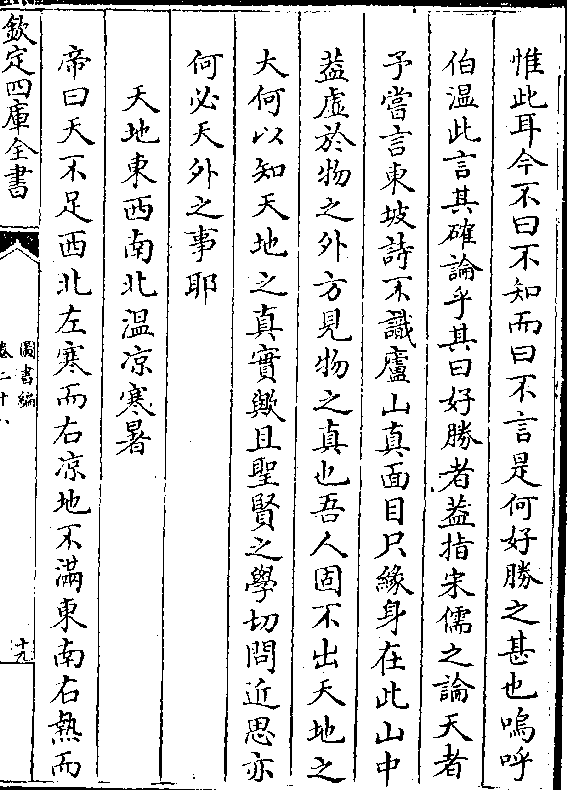 惟此耳今不曰不知而曰不言是何好勝之甚也嗚呼
伯温此言其確論乎其曰好勝者葢指宋儒之論天者
予嘗言東坡詩不識廬山真面目只緣身在此山中
葢虚於物之外方見物之真也吾人固不出天地之
大何以知天地之真實歟且聖賢之學切問近思亦
何必天外之事耶
天地東西南北温凉寒暑
帝曰天不足西北左寒而右凉地不滿東南右熱而
欽定四庫全書
圖書編
卷二十八
十九